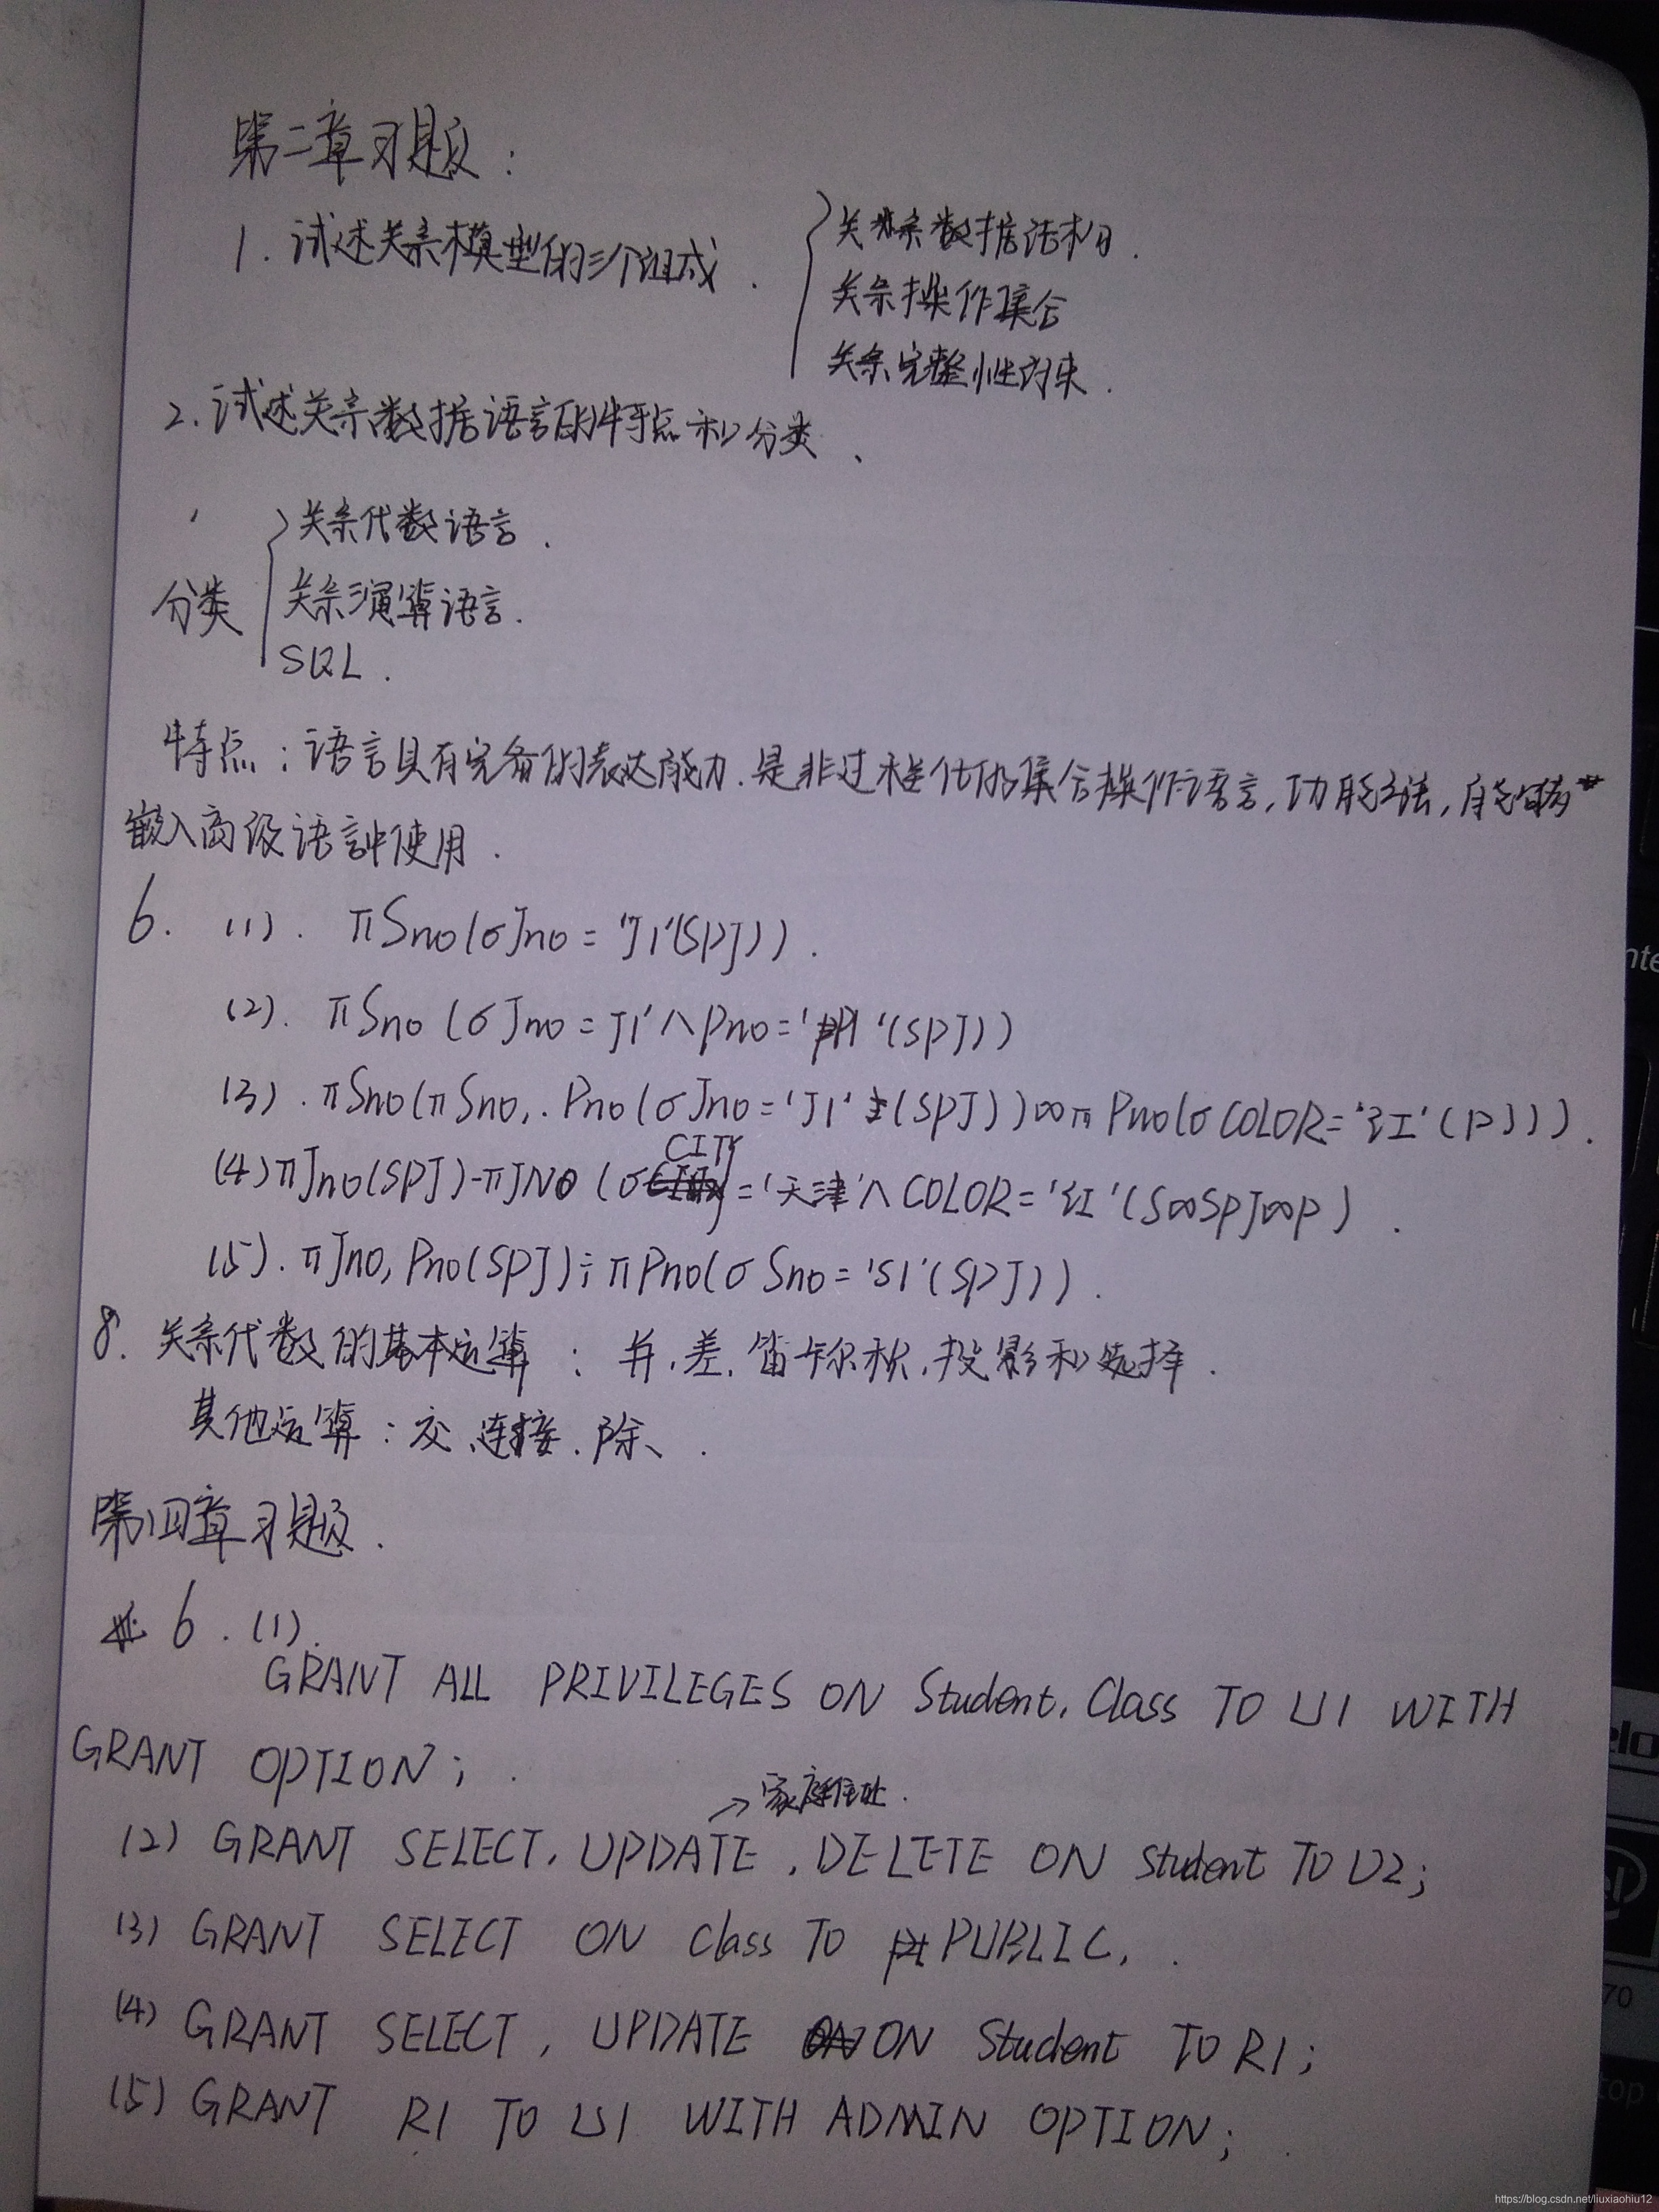 第二章习题:
1. 试述关系模型的三个组成.
关系数据结构.
关系操作集合
关系完整性约束.
2. 试述关系数据语言的特点和分类、
分类
关系代数语言.
关系演算语言.
SQL.
特点:语言具有完备的表达能力.是非过程化的集合操作语言,功能强,能够
嵌入高级语言中使用.
6. (1). πSno(σJno='J1'(SPJ)).
(2). πSno(σJno=J1'∧Pno='P1'(SPJ))
(3). πSno(πSno,.Pno(σJno='J1'(SPJ))∞πPno(σCOLOR='红'(P))).
(4)πJno(SPJ)-πJNO(σCITY='天津'∧COLOR='红'(S∞SPJ∞P).
(5). πJno,Pno(SPJ)÷πPno(σSno='S1'(SPJ)).
8. 关系代数的基本运算:并,差,笛卡尔积,投影和选择.
其他运算:交、连接、除、.
第四章习题.
6.(1).
GRANT ALL PRIVILEGES ON Student, Class TO U1 WITH
GRANT OPTION;
→家庭住址.
(2) GRANT SELECT, UPDATE, DELETE ON Student TO U2;
(3) GRANT SELECT ON Class TO PUBLIC,.
(4) GRANT SELECT, UPDATE ON Student TO R1;
(5) GRANT R1 TO U1 WITH ADMIN OPTION;
nte
elo
70
top
https://blog.csdn.net/liuxiaohiu12